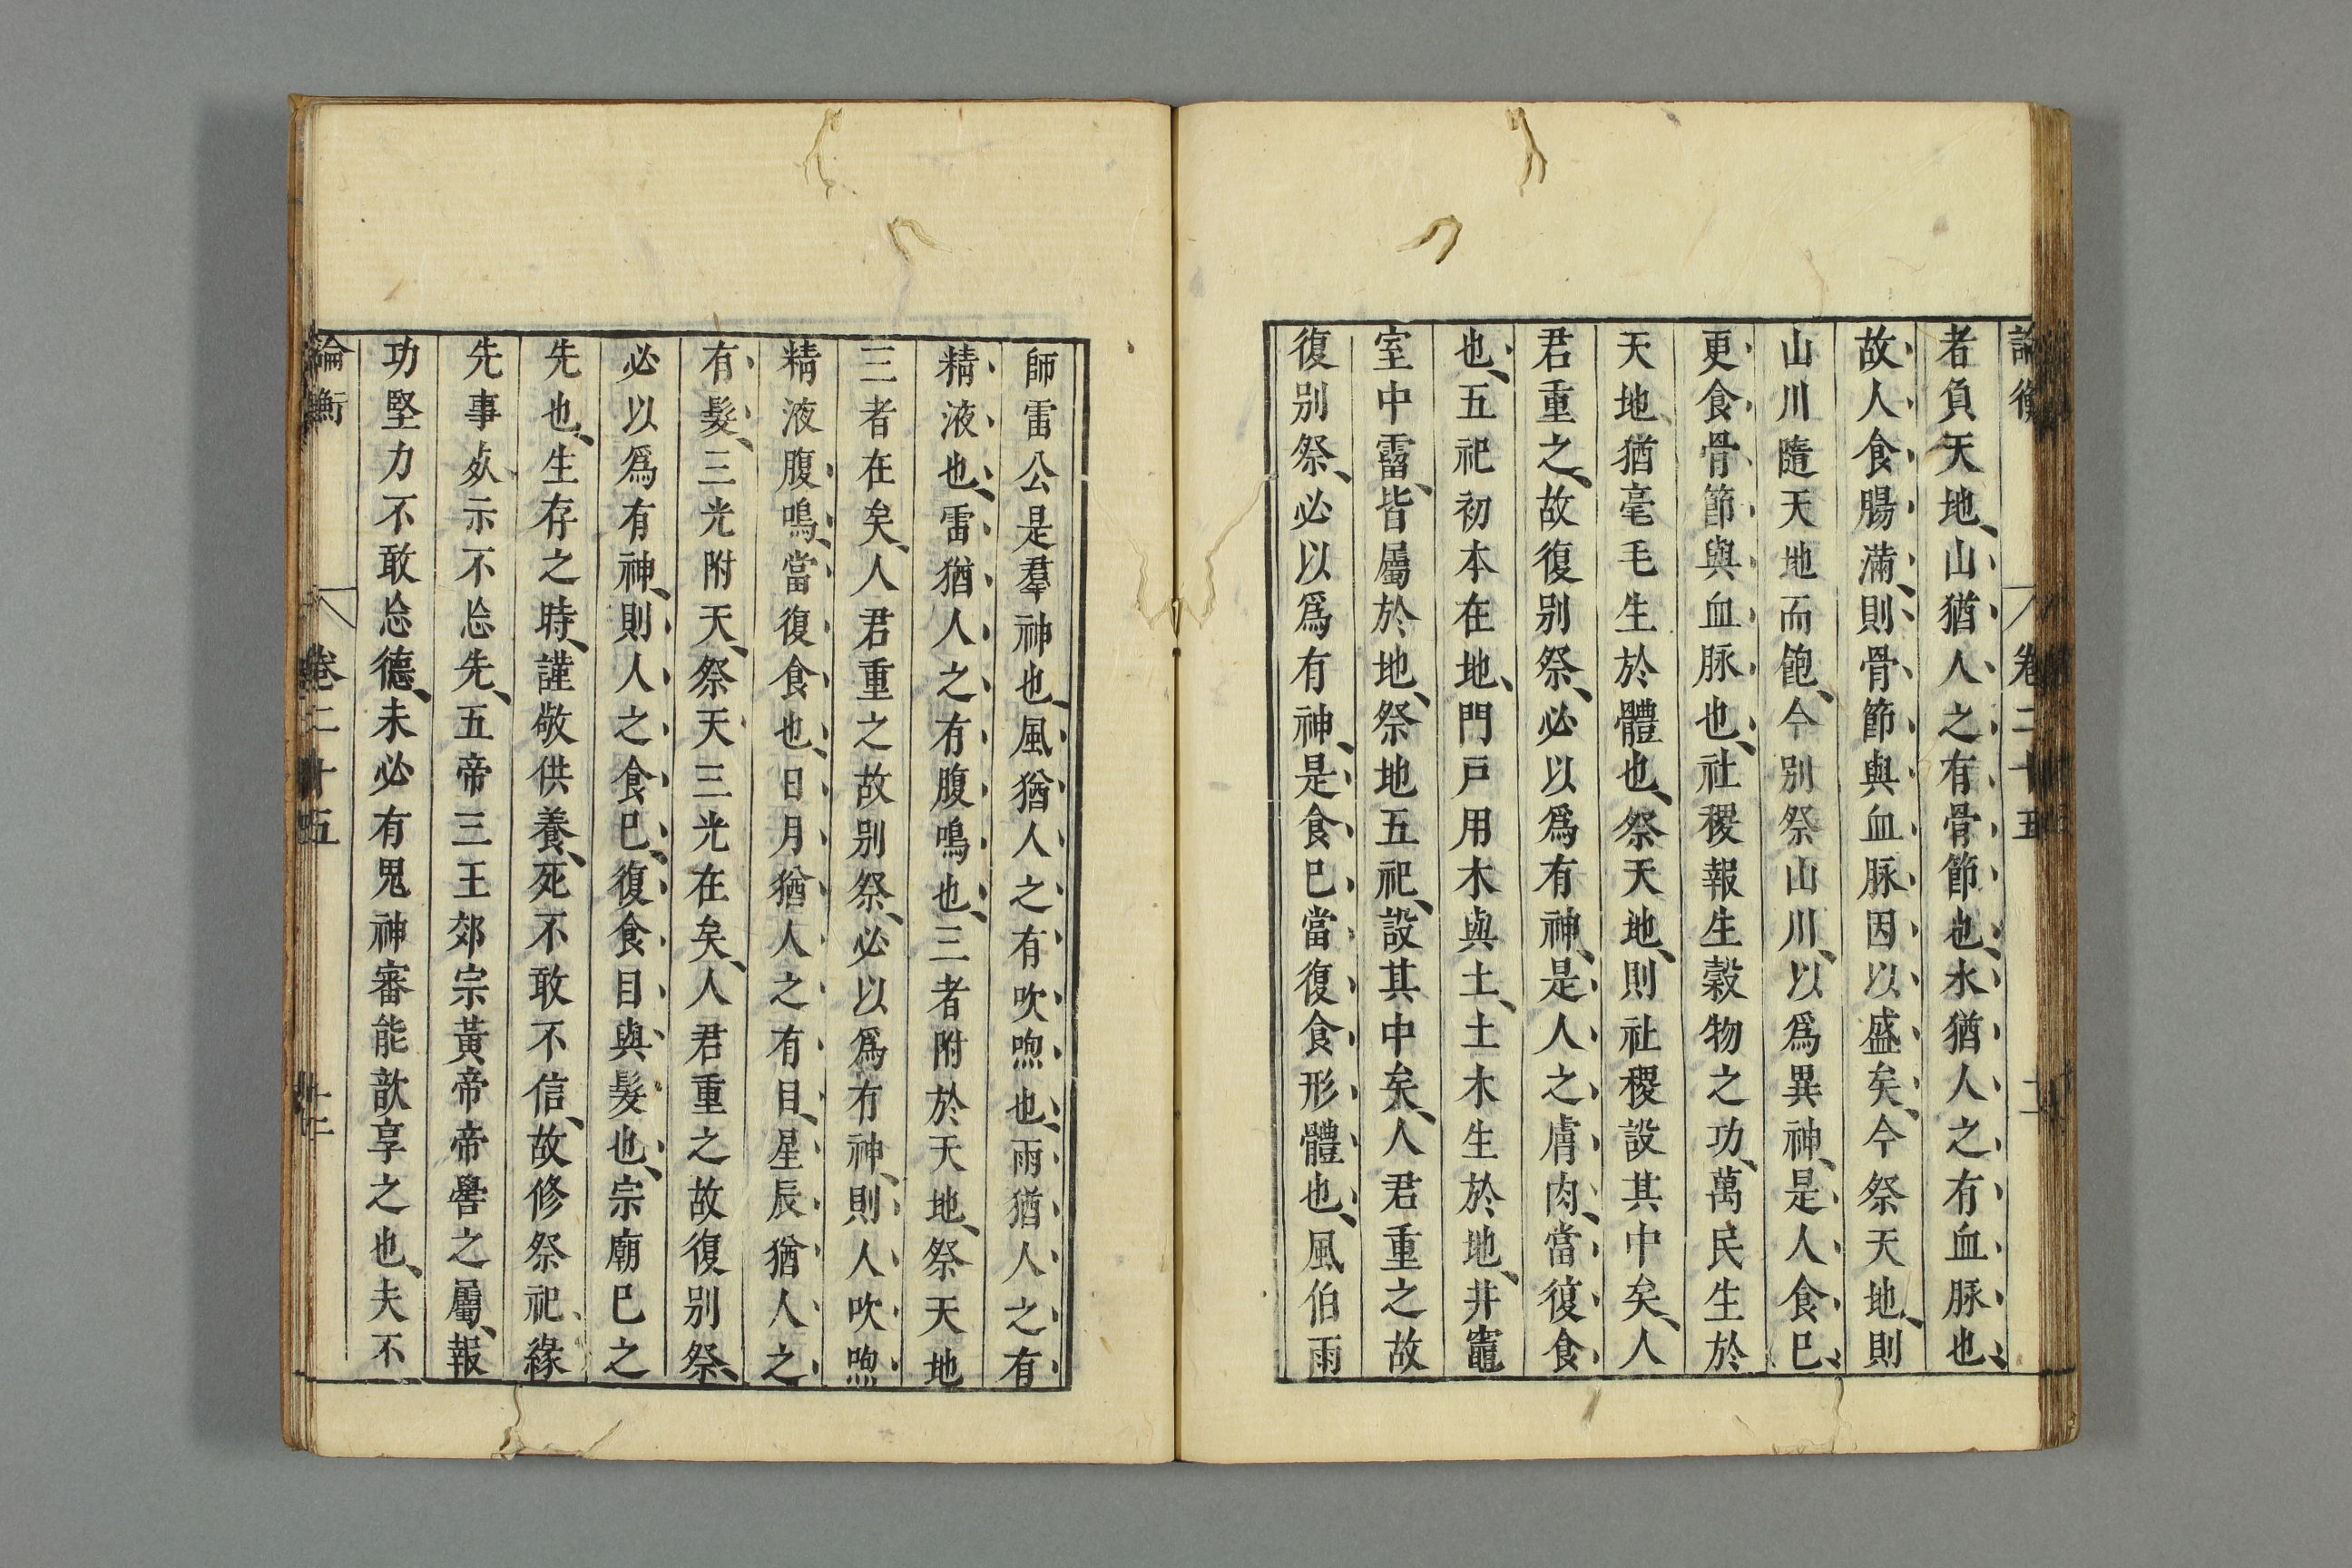 論衡 卷二十五
者負天地、山猶人之有骨節也、水猶人之有血脉也、
故人食腸滿、則骨節與血脉因以盛矣、今祭天地、則
山川隨天地而飽、今別祭山川、以爲異神、是人食巳、
更食骨節與血脉也、社稷報生穀物之功、萬民生於
天地、猶毫毛生於體也、祭天地、則社稷設其中矣、人
君重之、故復别祭、必以爲有神、是人之膚肉、當復食
也、五祀初本在地、門戸用木與土、土木生於地、井竈
室中霤、皆屬於地、祭地五祀、設其中矣、人君重之故
復别祭、必以爲有神、是食巳當復食形體也、風伯雨
師雷公是羣神也、風猶人之有吹喣也、雨猶人之有
精液也、雷猶人之有腹鳴也、三者附於天地、祭天地
三者在矣、人君重之故别祭、必以爲有神、則人吹喣
精液腹鳴、當復食也、日月猶人之有目、星辰猶人之
有髮、三光附天、祭天三光在矣、人君重之故復別祭、
必以爲有神、則人之食巳、復食目與髮也、宗廟巳之
先也、生存之時、謹敬供養、死不敢不信、故修祭祀、緣
先事死示不忘先、五帝三王郊宗黃帝帝嚳之屬、報
功堅力不敢忘德、未必有鬼神審能歆享之也、夫不
論衡 卷二十五 十二